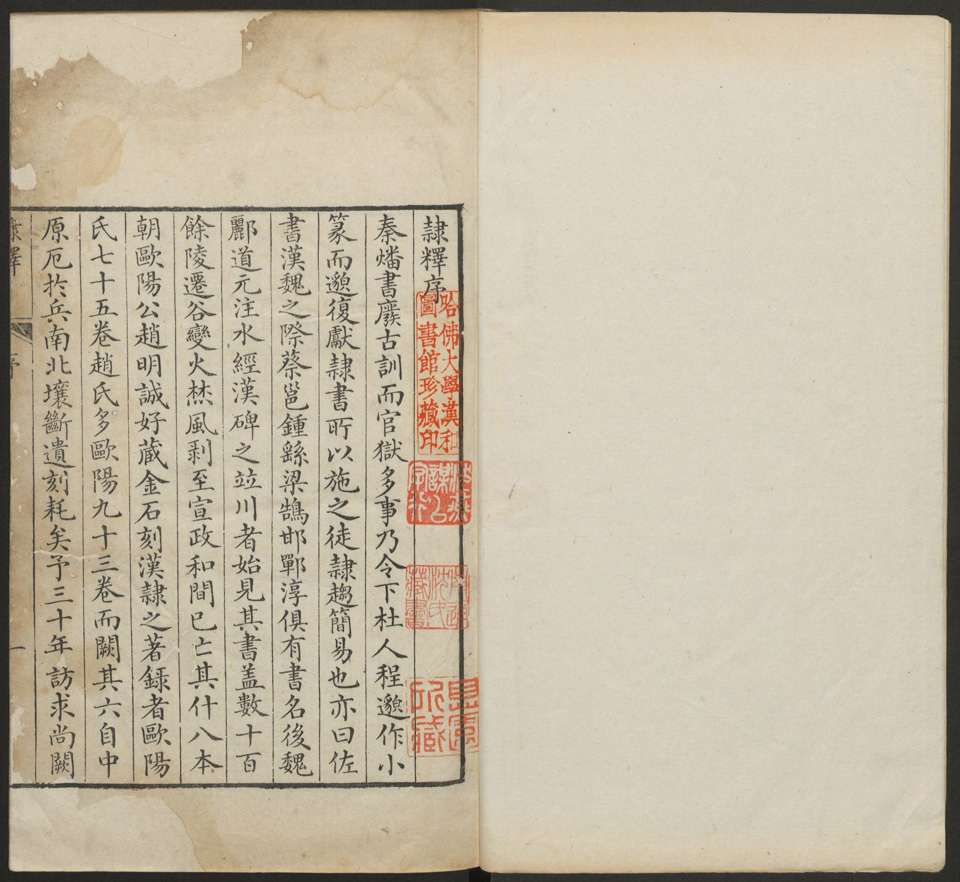 隸釋序
秦燔書廢古訓而官獄多事乃令下杜人程邈作小
篆而邈復獻隸書所以施之徒隸趨簡易也亦曰佐
書漢魏之際蔡邕鍾繇梁鵠邯鄲淳俱有書名後魏
酈道元注水經漢碑之竝川者始見其書盖數十百
餘陵遷谷變火焚風剥至宣政和間已亡其什八本
朝歐陽公趙明誠好蔵金石刻漢隸之著録者歐陽
氏七十五卷趙氏多歐陽九十三卷而闕其六自中
原厄於兵南北壤斷遺刻耗矣予三十年訪求尚闕
隸釋
序
一
哈佛大學漢和
圖書館珍藏印
藏書
所藏